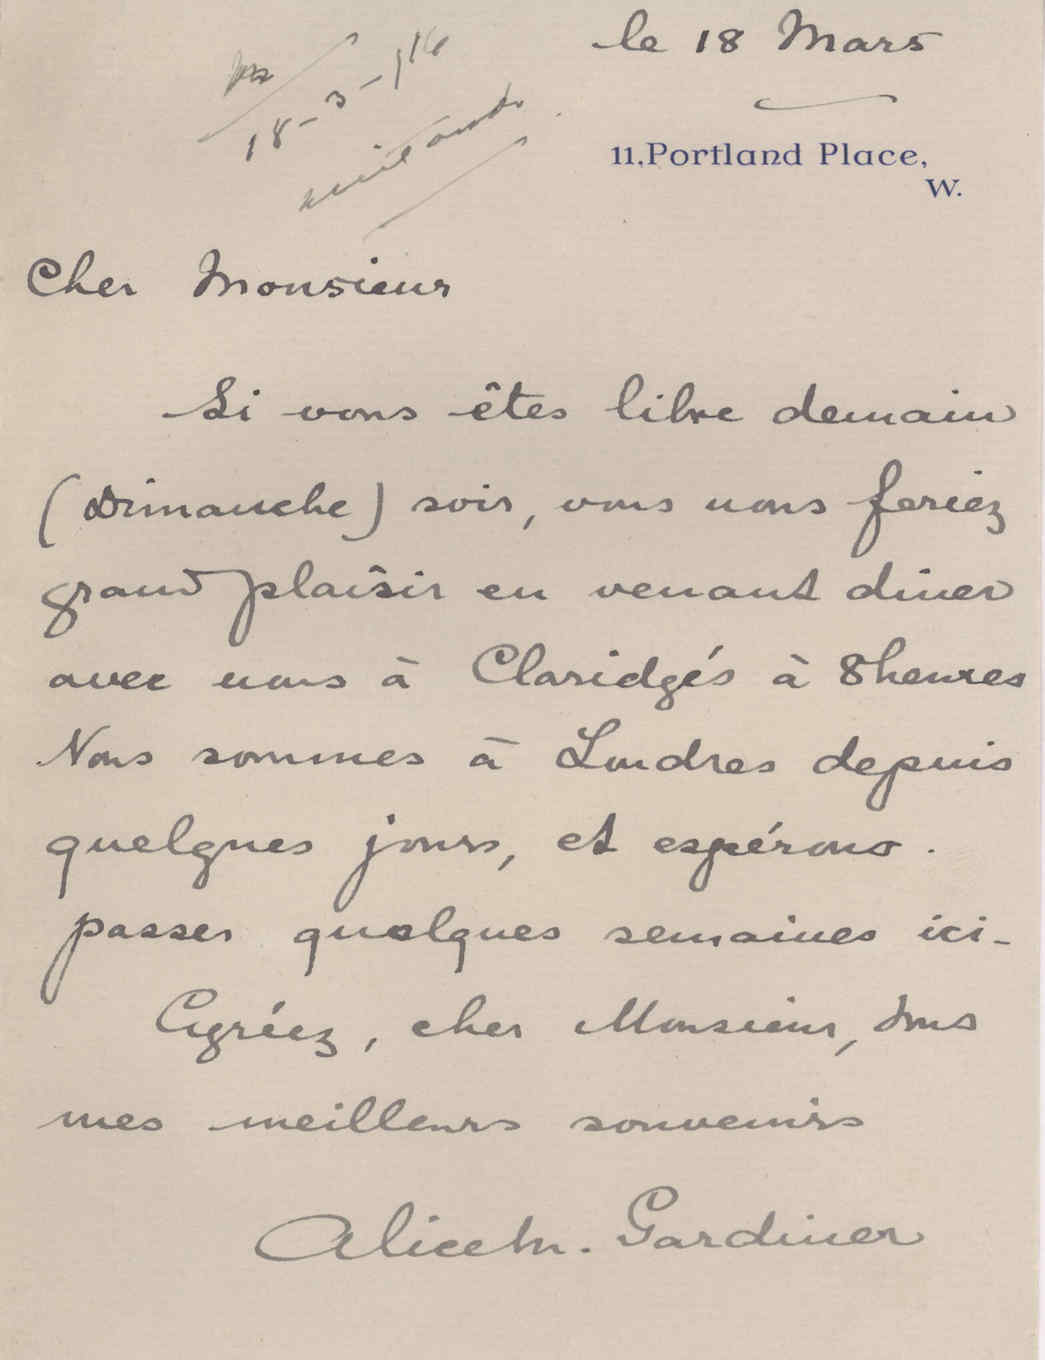 le 18 Mars
18-3-16
11, Portland Place,
W.
Cher Monsieur
Si vous êtes libre demain
(Dimanche) soir, vous nous feriez
grand plaîsir en venant diner
avec nous à Claridgés à 8 heures
Nous sommes à Londres depuis
quelques jours, et espérons
passer quelques semaines ici-
Agréez, cher Monsieur, tous
mes meilleurs souvenirs
Alice M. Gardiner